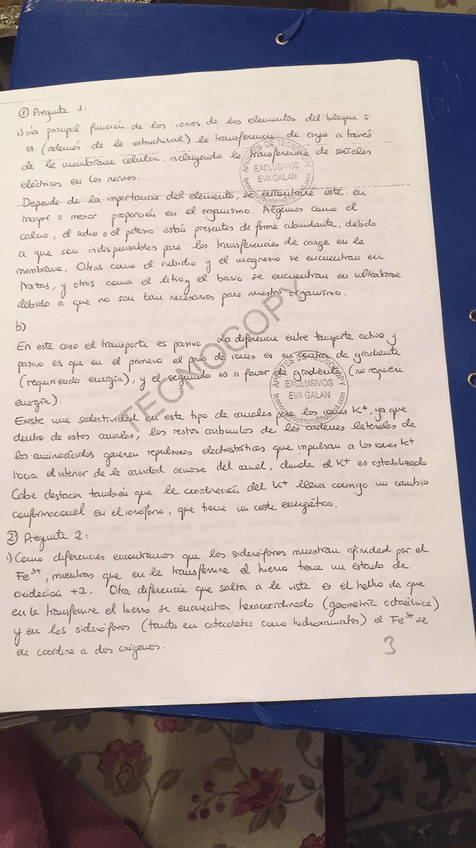 ① Pregunta 1:
a) La principal función de los iones de los elementos del bloque s
es (además de la estructural) la transferencia de carga a través
de la membrana celular, incluyendo la transferencia de señales
eléctricas en los nervios.
Depende de la importancia del elemento, se encontrará este en
mayor o menor proporción en el organismo. Algunos como el
calcio, el sodio o el potasio están presentes de forma abundante, debido
a que son indispensables para las transferencias de carga en la
membrana. Otros como el rubidio y el magnesio se encuentran en
trazas, y otros como el litio y el bario se encuentran en ultratrazas
debido a que no son tan necesarios para nuestro organismo.
APUNTES DE TECNOCOPY
EXCLUSIVOS
EVA GALAN
b)
En este caso el transporte es pasivo. La diferencia entre transporte activo y
pasivo es que en el primero el paso de iones es en contra de gradiente
(requiriendo energía), y el segundo es a favor de gradiente (no requiere
energía).
Existe una selectividad en este tipo de canales para los iones K+, ya que
dentro de estos canales, los restos carbonilos de las cadenas laterales de
los aminoácidos generan repulsiones electrostáticas que impulsan a los iones K+
hacia el interior de la cavidad acuosa del canal, donde el K+ es estabilizado
Cabe destacar también que la coordinación del K+ lleva consigo un cambio
conformacional en el ionóforo, que tiene un coste energético.
APUNTES DE TECNOCOPY
EXCLUSIVOS
EVA GALAN
TECNOCOPY
② Pregunta 2:
a) Como diferencias encontramos que los sideróforos muestran afinidad por el
Fe3+, mientras que en la transferrina el hierro tiene un estado de
oxidación +2. Otra diferencia que salta a la vista es el hecho de que
en la transferrina el hierro se encuentra hexacoordinado (geometría octaédrica)
y en los sideróforos (tanto en catecolatos como hidroxamatos) el Fe3+ se
coordina a dos oxígenos.
3